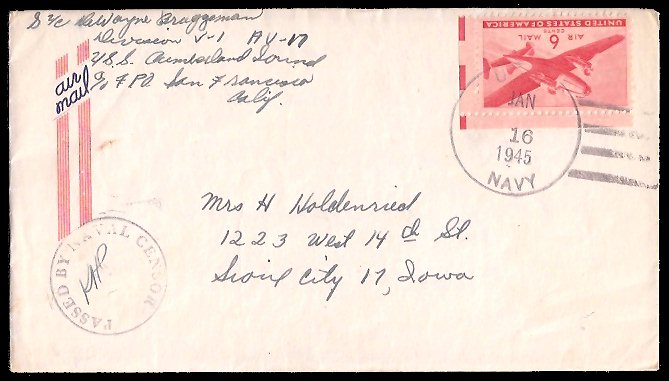 S 2/c DeWayne Bruggeman
Division V-1 AV-17
U.S.S. Cumberland Sound
c/o F.P.O. San Francisco
Calif.
air
mail
UNITED STATES OF AMERICA
AIR MAIL
6
CENTS
JAN
16
1945
NAVY
Mrs H Holdenried
1223 West 14th St.
Sioux City 17, Iowa
PASSED BY NAVAL CENSOR